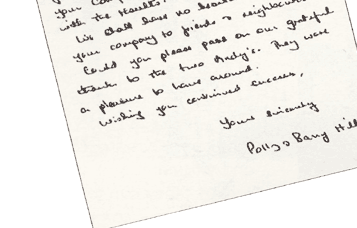 your com
with the results.
We shall have no
your company to friends & neighbours.
Could you please pass on our grateful
thanks to the two Andy's. They were
a pleasure to have around.
Wishing you continued success,
Yours sincerely
Polly & Barry Hill